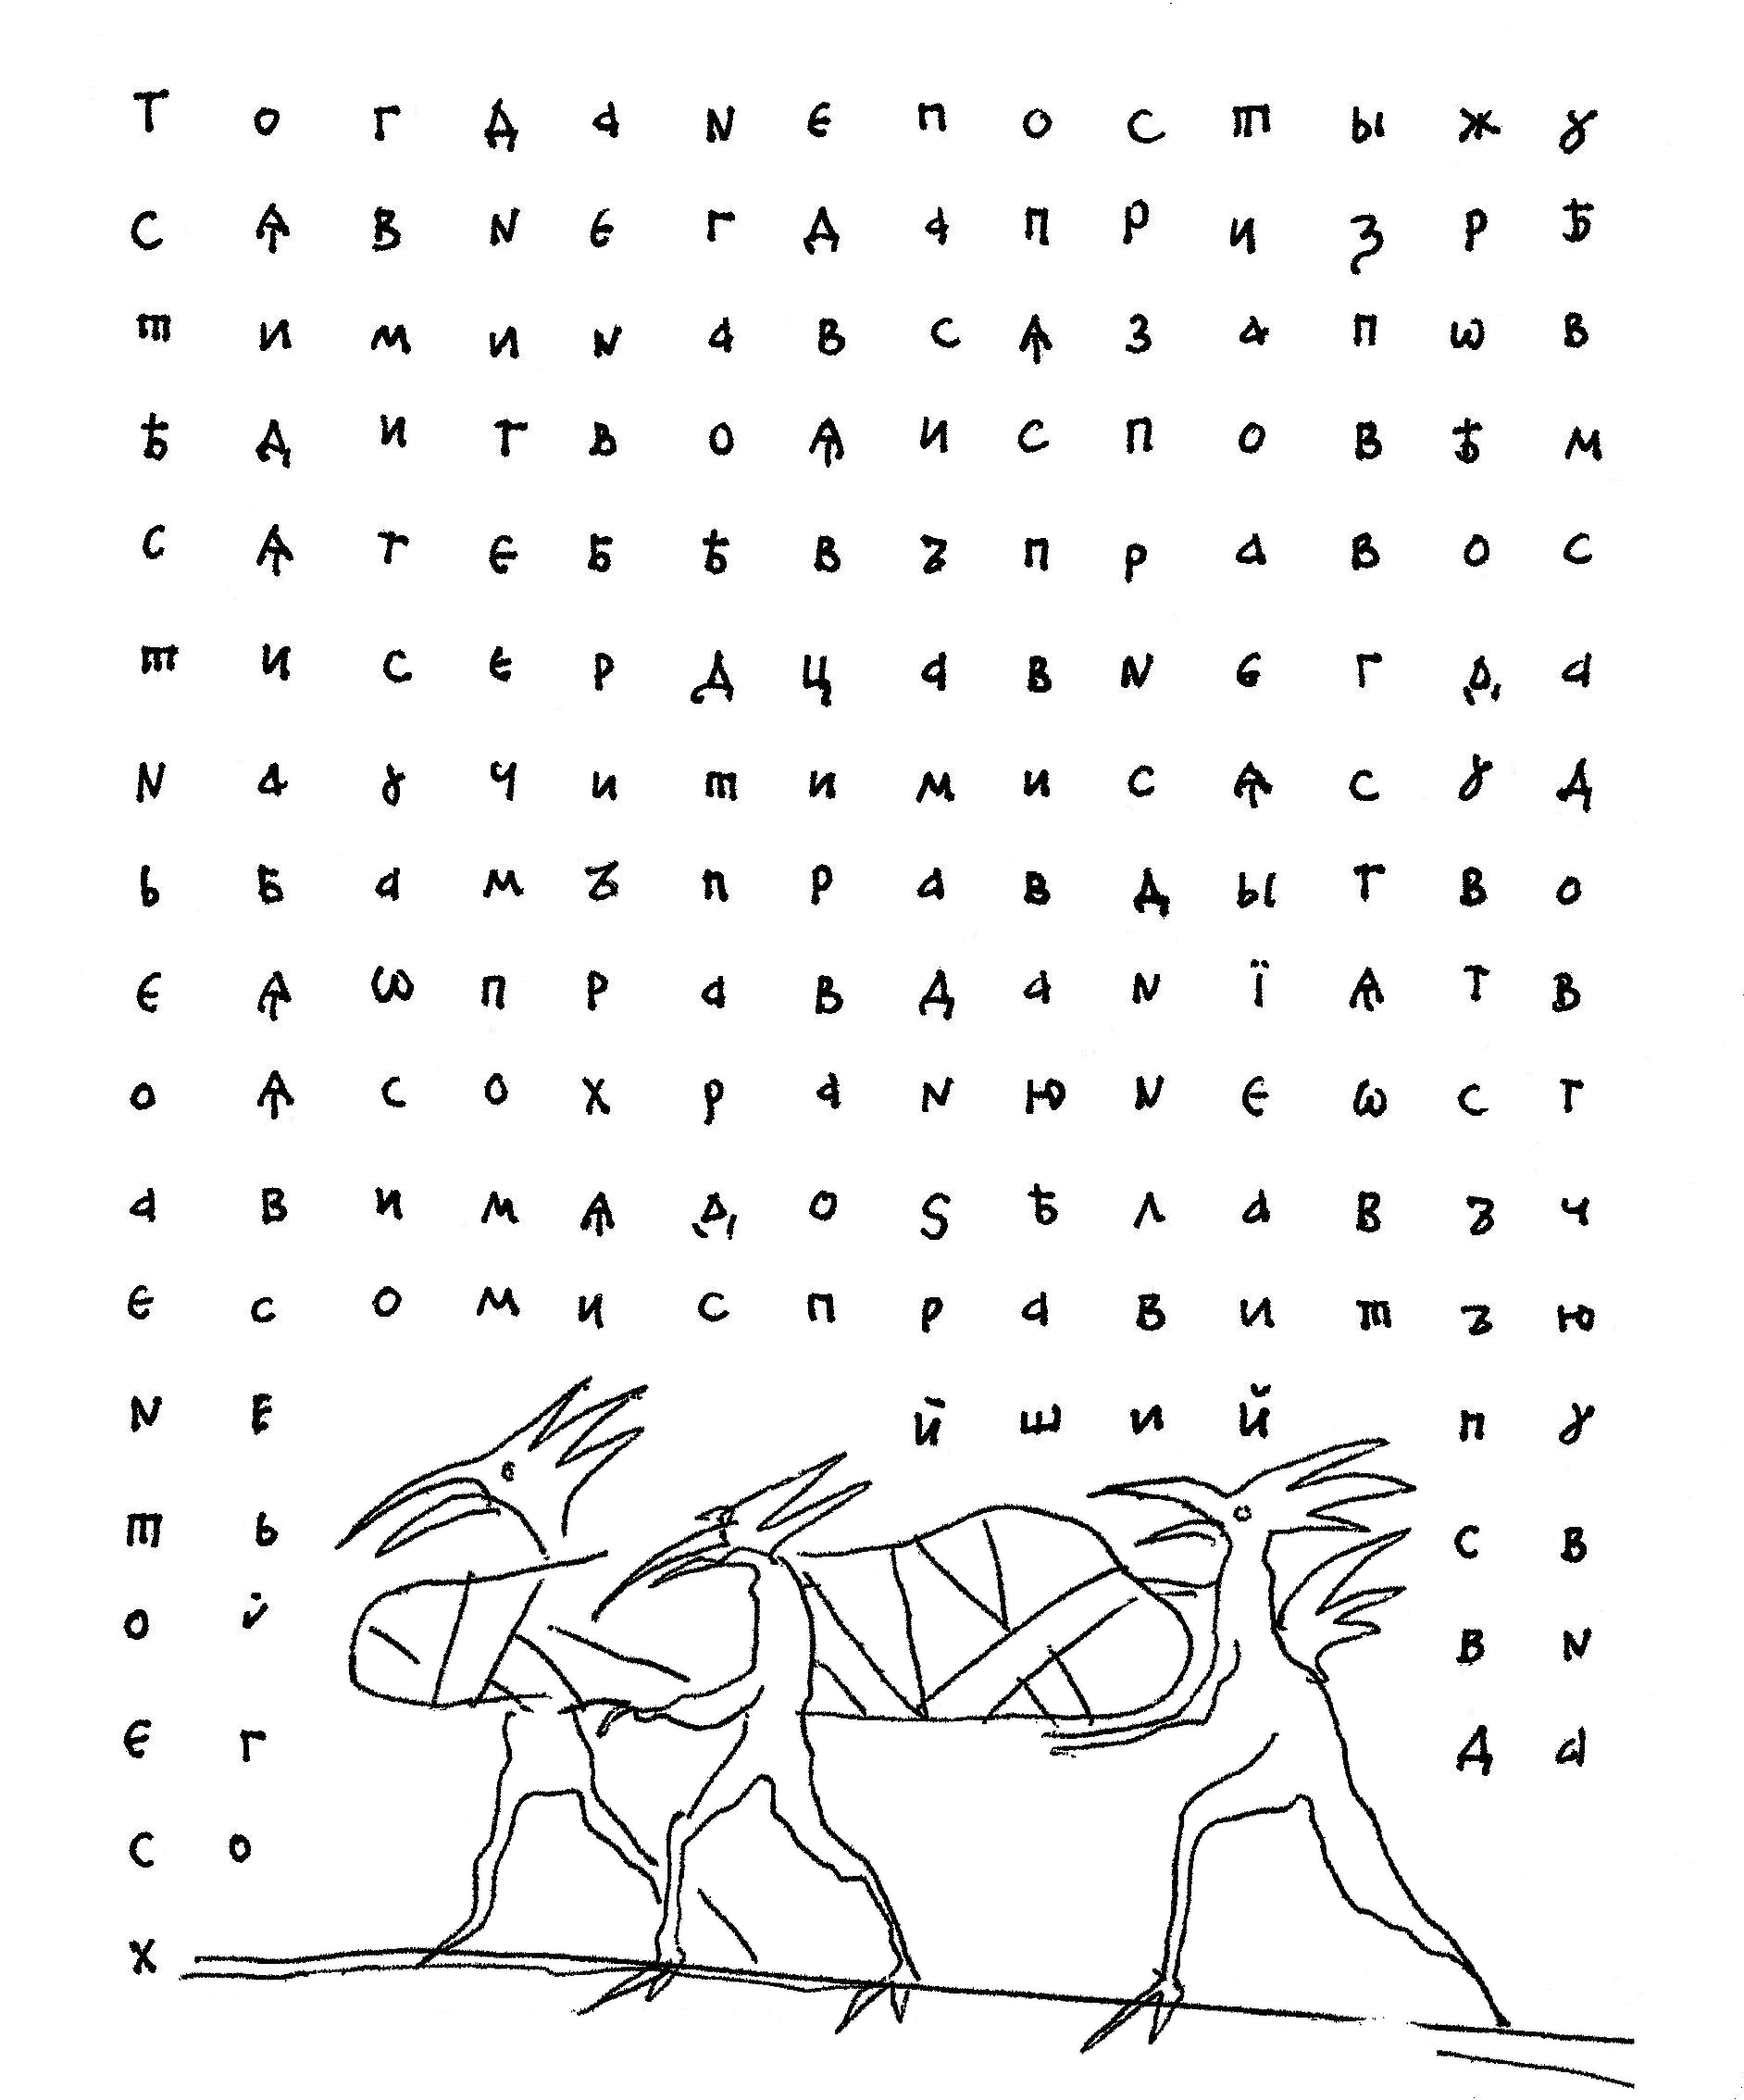 Т о г д а н є п о с т ы ж ꙋ
с ѧ в н є г д а п р и з р ѣ
т и м и н а в с ѧ з а п ѡ в
ѣ д и т в о ѧ и с п о в ѣ м
с ѧ т є б ѣ в ъ п р а в о с
т и с є р д ц а в н є г д а
н а ꙋ ч и т и м и с ѧ с ꙋ д
ь б а м ъ п р а в д ы т в о
є ѧ ѡ п р а в д а н ї ѧ т в
о ѧ с о х р а н ю н є ѡ с т
а в и м ѧ д о ѕ ѣ л а в ъ ч
є с о м и с п р а в и т ъ ю
н е й ш и й п ꙋ
т ь с в
о й в н
є г д а
с о
х